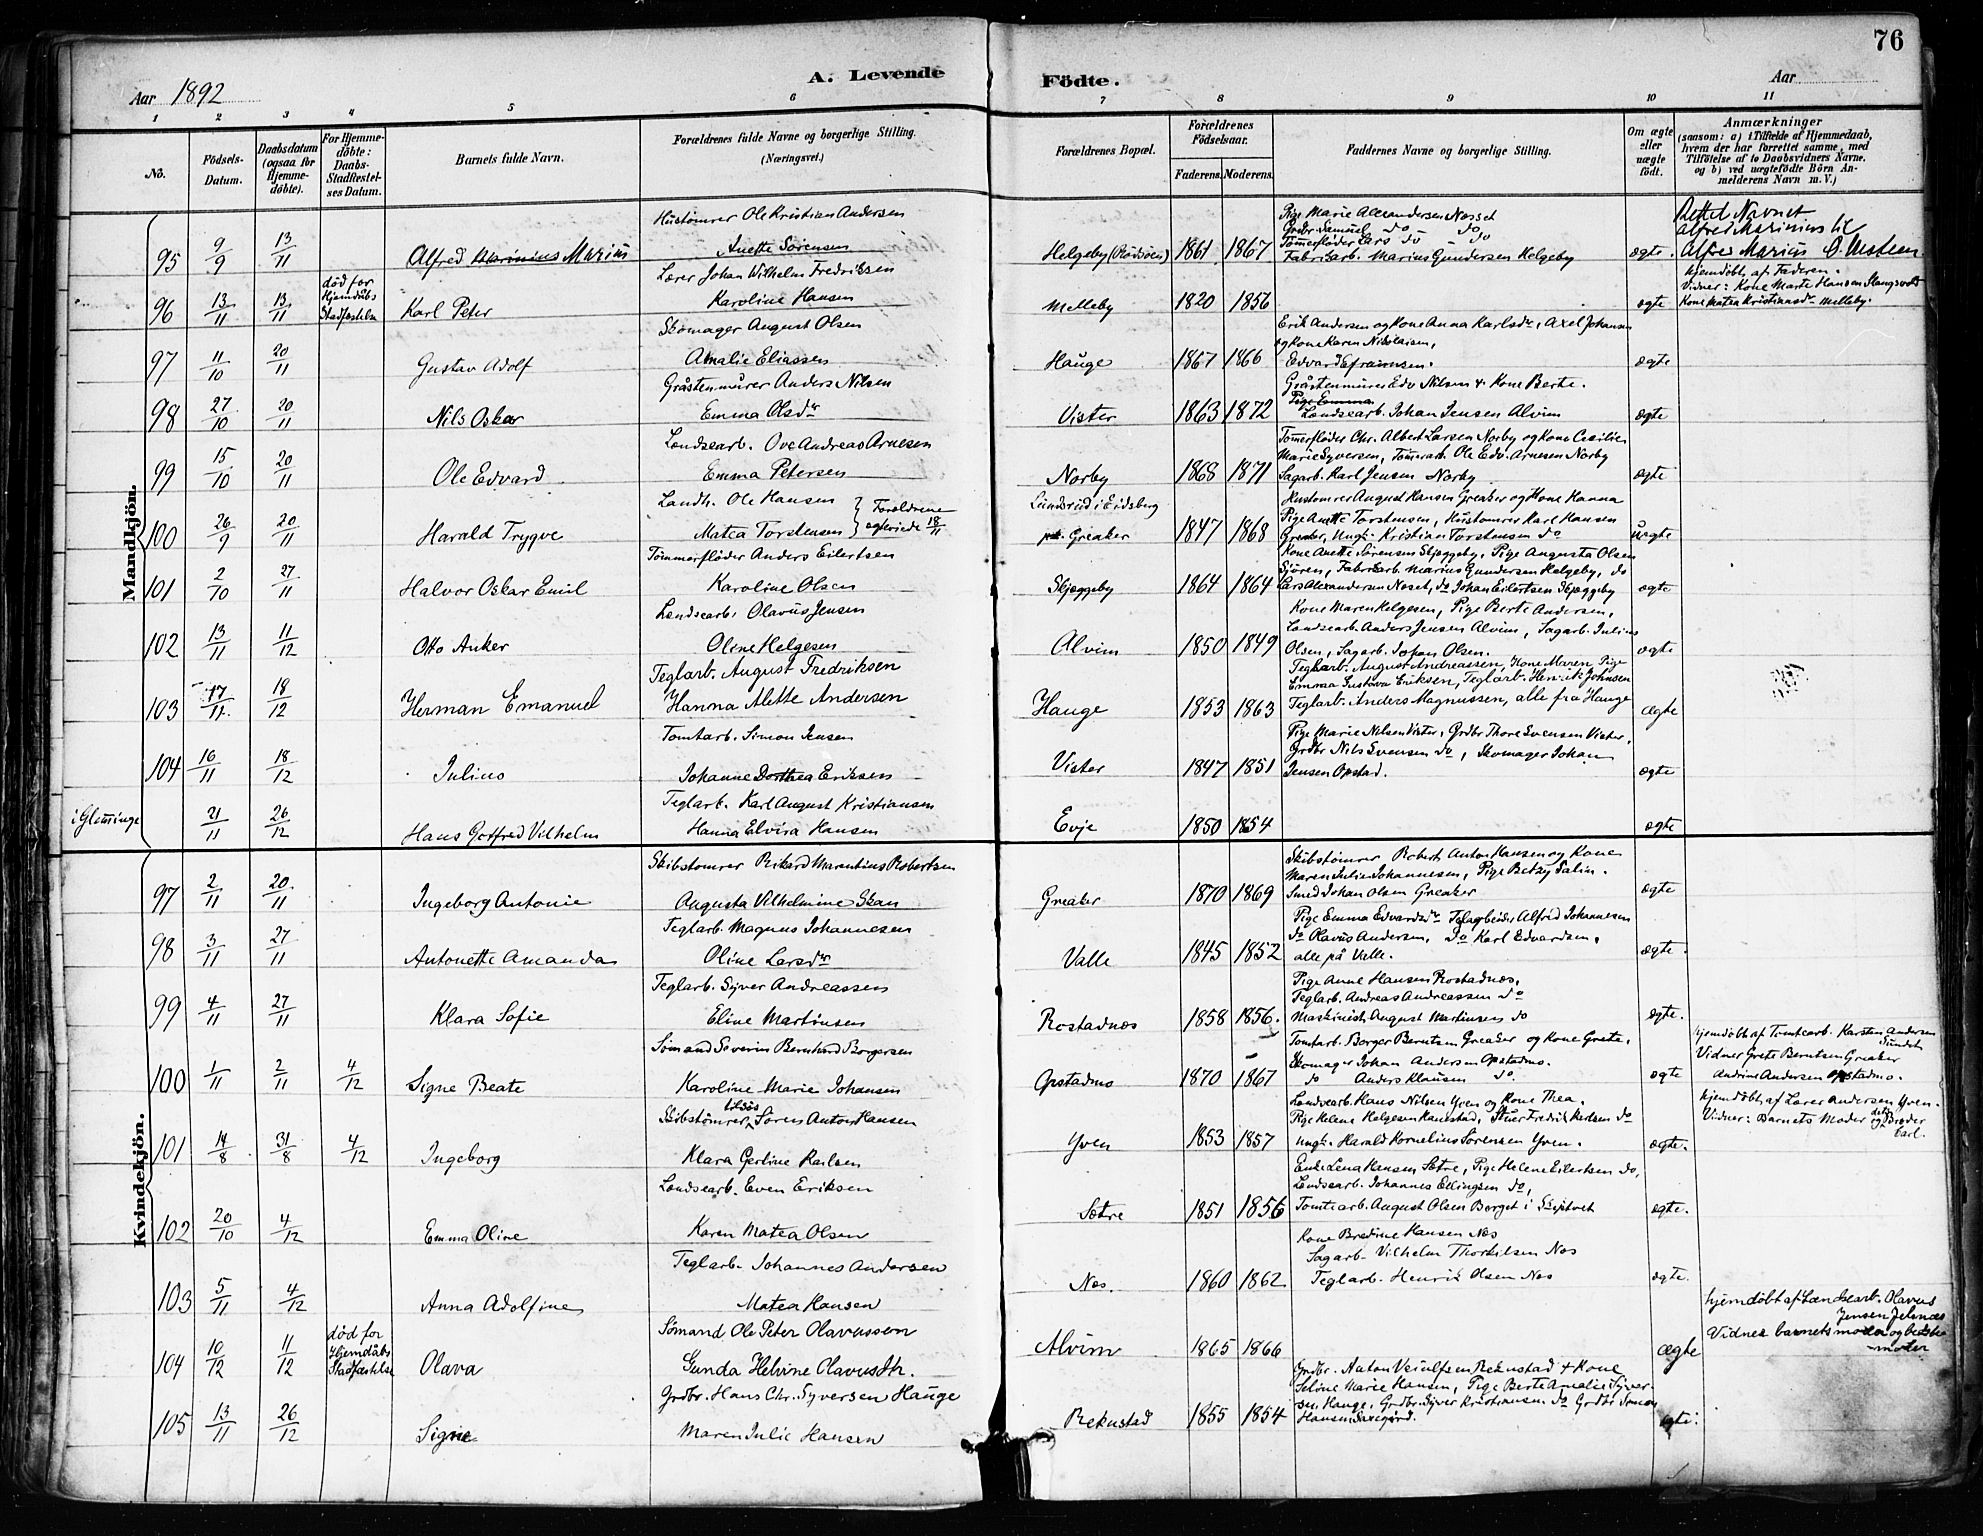 76
A. Levende Födte.
Aar 1892
Aar
1 2 3 4 5 6 7 8 9 10 11
No.
Födsels-Datum.
Daabsdatum (ogsaa for Hjemme-döbte).
For Hjemme-döbte: Daabs-Stadfæstel-ses Datum.
Barnets fulde Navn.
Forældrenes fulde Navne og borgerlige Stilling. (Næringsvei.)
Forældrenes Bopæl.
Forældrenes Födselsaar.
Faderens. Moderens.
Faddernes Navne og borgerlige Stilling.
Om ægte eller uægte födt.
Anmærkninger
(saasom: a) i Tilfælde af Hjemmedaab, hvem der har forrettet samme, med Tilföielse af to Daabsvidners Navne, og b) ved uægtefödte Börn An-melderens Navn m. V.)
Mandkjön.
Hustømrer Ole Kristian Andersen
Pige Marie Alexandersen Nøsset
Grdbr Samuel do do
Tømmerfløder Lars do do
Rettet Navnet
Alfred Marinius til
95 9/9 13/11 Alfred Marinius Marius Anette Sørensen Helgeby 1861 1867 Fabrikarb. Marius Gundersen Helgeby ægte.
Alfred Marius
Lærer Johan Wilhelm Fredriksen
død før Hjemdåbs Stadfæstelse
hjemdøbt af Faderen.
Vidner: Kone Marte Hansen
96 13/11 13/11 Karl Peter Karoline Hansen Melleby 1820 1856 ægte Kone Matea Kristiansdr Melleby.
Skomager August Olsen
Erik Andersen og Kone Anna Karlsdr, Axel Johansen
og Kone Karen Nikolaisen,
97 11/10 20/11 Gustav Adolf Amalie Eliassen Hauge 1867 1866 Edvard Efraimsen. ægte
Gråstenmurer Anders Nilsen
Gråstenmurer Edv Nilsen & Kone Berte.
Pige Emma
98 27/10 20/11 Nils Oskar Emma Olsdr Vister 1863 1872 Landsearb. Johan Jensen Alvim ægte
Landsearb. Ove Andreas Arnesen
Tømmerfløder Chr. Albert Larsen Norby og Kone Cecilie
Marie Syversen, Tømmerarb. Ole Edv. Arnesen Norby
99 15/10 20/11 Ole Edvard Emma Petersen Norby 1868 1871 Sagarb. Karl Jensen Norby ægte
Landh. Ole Hansen } Forældrene
Lundsrud i Eidsberg
Hustømrer August Hansen Greaker og Kone Hanna
Pige Anette Torstensen, Hustømrer Karl Hansen
100 26/9 20/11 Harald Trygve Matea Torstensen ægteviede 18/11 Greaker 1847 1868 Greaker, Ungk. Kristian Torstensen do uægte
Tømmerfløder Anders Eilertsen
Kone Anette Sørensen Skjæggeby, Pige Augusta Olsen
Fabrikarb. Marius Gundersen Helgeby, do
101 2/10 27/11 Halvor Oskar Emil Karoline Olsen Skjæggeby 1864 1864 Lars Alexandersen Nøset, do Johan Eilertsen Skjæggeby ægte
Landsearb. Olavus Jensen
Kone Maren Helgesen, Pige Berte Andersen,
Landsearb. Anders Jensen Alvim, Sagarb. Julius
102 13/11 11/12 Otto Anker Oline Helgesen Alvim 1850 1849 Olsen, Sagarb. Johan Olsen. ægte
Teglarb. August Fredriksen
Teglarb. August Andreassen, Kone Maren, Pige
Emma Gustava Eriksen, Teglarb. Henrik Johnsen
103 17/11 18/12 Herman Emanuel Hanna Alette Andersen Hauge 1853 1863 Teglarb. Anders Magnussen, alle fra Hauge ægte
Tomtarb. Simon Jensen
Pige Marie Nilsen Vister, Grdbr Thore Svensen Vister,
Grdbr Nils Svensen do, Skomager Johan
104 16/11 18/12 Julius Johanne Dorthea Eriksen Vister 1847 1851 Jensen Opstad. ægte
Teglarb. Karl August Kristiansen
i Glemminge 21/11 26/12 Hans Gotfred Vilhelm Hanna Elvira Hansen Evje 1850 1854 ægte
Kvindekjön.
Skibstømrer Rikard Marentius Robertsen
Skibstømrer Robert Anton Hansen og Kone
Maren Julie Johannesen, Pige Betzy Salin.
97 2/11 20/11 Ingeborg Antonie Augusta Vilhelmine Skau Greaker 1870 1869 Smed Johan Olsen Greaker ægte
Teglarb. Magnus Johannesen
Pige Emma Edvardsdr Teglarbeider Alfred Johannesen
do Olavus Andersen, do Karl Edvardsen,
98 3/11 27/11 Antonette Amanda Oline Larsdr Valle 1845 1852 alle på Valle. ægte.
Teglarb. Syver Andreassen
Pige Anne Hansen Rostadnes,
Teglarb. Andreas Andreassen do
99 4/11 27/11 Klara Sofie Eline Martinsen Rostadnæs 1858 1856. Maskinist August Martinsen do ægte.
Sømand Severin Bernhard Borgersen
Tomtarb. Borger Berntsen Greaker og Kone Grete,
Skomager Johan Andersen Opstadmo.
hjemdøbt af Tomtearb. Karsten Andersen
Vidner Grete Berntsen Greaker
100 1/11 2/11 4/12 Signe Beate Karoline Marie Johansen Opstadmo 1870 1867 do Anders Klausen do. ægte Andrine Andersen Opstadmo.
Skibstømrer Søren Anton Hansen
Landsearb. Hans Nilsen Yven og Kone Thea.
Pige Helene Helgesen Haustad, Fredrik Karlsen do
hjemdøbt af Lærer Andersen Yven.
Vidner: Barnets Moder og Broder Carl.
101 14/8 31/8 4/12 Ingeborg Klara Gerline Karlsen Yven 1853 1857 Ungk. Harald Kornelius Sørensen Yven. ægte.
Landsearb. Even Eriksen
Enke Lena Hansen Sætre, Pige Helene Eilertsen do,
Landsearb. Johannes Ellingsen do,
102 20/10 4/12 Emma Oline Karen Matea Olsen Sætre 1851 1856 Tomtearb. August Olsen Berget i Skiptvet ægte.
Teglarb. Johannes Andersen
Kone Bredine Hansen Næs
Sagarb. Vilhelm Thorkilsen Næs
103 5/11 4/12 Anna Adolfine Matea Hansen Næs. 1860 1862 Teglarb. Henrik Olsen Næs ægte.
Sømand Ole Peter Olavussen
død før Hjemdåbs Stadfæstelse
hjemdøbt af Landsearb. Olavus
Jensen Jelsnæs
Vidner barnets moder og bedste-moder
104 10/12 11/12 Olava Gunda Helvine Olavusdt. Alvim 1865 1866 ægte
Grdbr. Hans Chr. Syversen Hauge
Grdbr. Anton Rekustad & Kone
Marie Hansen, Pige Berte Amalie Syver-
sen Hauge, Grdbr. Syver Kristiansen do Grdbr Simon
105 13/11 26/12 Signe Maren Julie Hansen Rekustad 1855 1854 Hansen ægte.